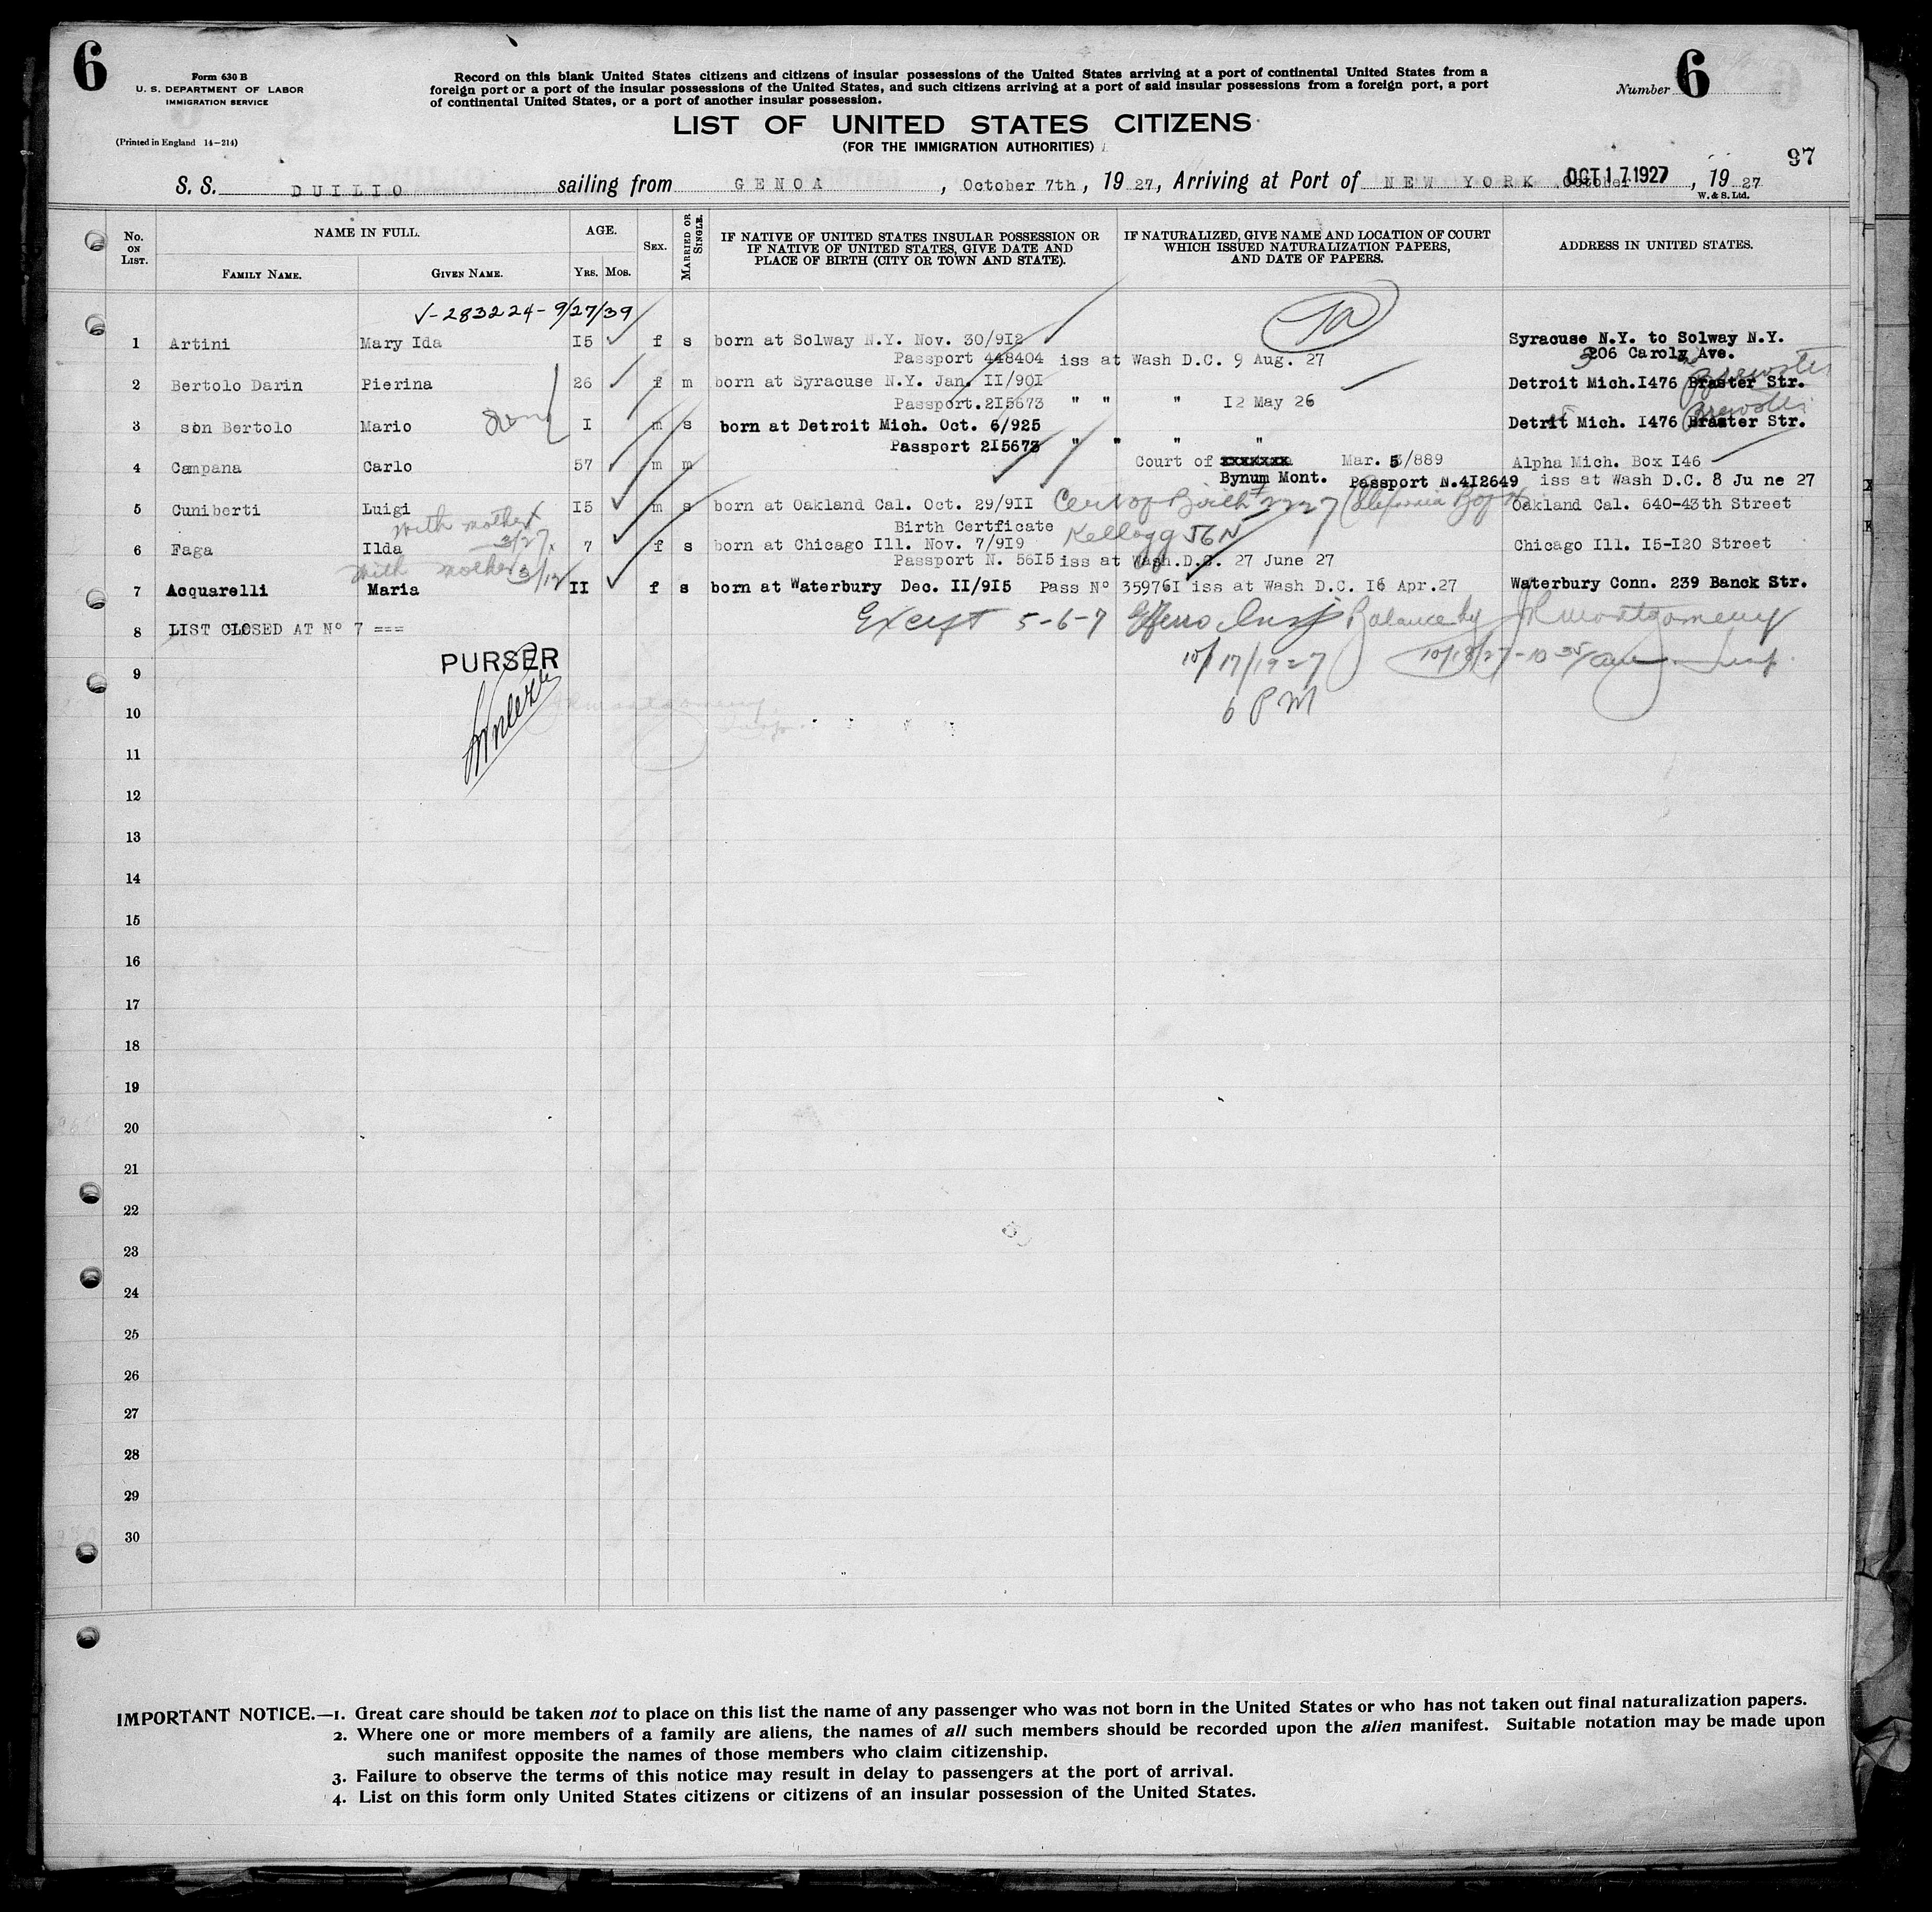 6
Form 630 B
U. S. DEPARTMENT OF LABOR
IMMIGRATION SERVICE
(Printed in England 14-214)
Record on this blank United States citizens and citizens of insular possessions of the United States arriving at a port of continental United States from a
foreign port or a port of the insular possessions of the United States, and such citizens arriving at a port of said insular possessions from a foreign port, a port
of continental United States, or a port of another insular possession.
Number 6
LIST OF UNITED STATES CITIZENS
(FOR THE IMMIGRATION AUTHORITIES)
97
S. S. DUILIO sailing from GENOA, October 7th, 1927, Arriving at Port of NEW YORK October OCT 17 1927, 1927
W. & S. Ltd.
No. ON LIST.
NAME IN FULL.
FAMILY NAME.
GIVEN NAME.
AGE.
YRS. MOS.
SEX.
MARRIED OR SINGLE.
IF NATIVE OF UNITED STATES INSULAR POSSESSION OR
IF NATIVE OF UNITED STATES, GIVE DATE AND
PLACE OF BIRTH (CITY OR TOWN AND STATE).
IF NATURALIZED, GIVE NAME AND LOCATION OF COURT
WHICH ISSUED NATURALIZATION PAPERS,
AND DATE OF PAPERS.
ADDRESS IN UNITED STATES.
V-283224-9/27/39
1 Artini Mary Ida I5 f s born at Solway N.Y. Nov. 30/9I2 Syracuse N.Y. to Solway N.Y.
Passport 448404 iss at Wash D.C. 9 Aug. 27 206 Caroly Ave.
2 Bertolo Darin Pierina 26 f m born at Syracuse N.Y. Jan. II/90I Detroit Mich.I476 Braster Str. Brewster
Passport.2I5673 " " " I2 May 26
3 son Bertolo Mario I m s born at Detroit Mich. Oct. 6/925 Detrit Mich. I476 Braster Str. Brewster
Passport 2I5673 " " " "
4 Campana Carlo 57 m m Court of xxxxxxx Mar. 5/889 Alpha Mich. Box I46
Bynum Mont. Passport N.4I2649 iss at Wash D.C. 8 Ju ne 27
5 Cuniberti Luigi I5 m s born at Oakland Cal. Oct. 29/9II Cert of Birth Oakland Cal. 640-43th Street
with mother 3/27 Birth Certficate Kellogg
6 Faga Ilda 7 f s born at Chicago Ill. Nov. 7/9I9 Chicago Ill. I5-I20 Street
with mother 3/12 Passport N. 56I5 iss at Wash.D.C. 27 June 27
7 Acquarelli Maria II f s born at Waterbury Dec. II/9I5 Pass Nº 35976I iss at Wash D.C. I6 Apr.27 Waterbury Conn. 239 Banck Str.
8 LIST CLOSED AT Nº 7 ===
Except 5-6-7 Insp Balance by JR Montgomery
10/17/1927 10/18/27-10 35
6 PM
PURSER
9
10
11
12
13
14
15
16
17
18
19
20
21
22
23
24
25
26
27
28
29
30
IMPORTANT NOTICE.—1. Great care should be taken not to place on this list the name of any passenger who was not born in the United States or who has not taken out final naturalization papers.
2. Where one or more members of a family are aliens, the names of all such members should be recorded upon the alien manifest. Suitable notation may be made upon
such manifest opposite the names of those members who claim citizenship.
3. Failure to observe the terms of this notice may result in delay to passengers at the port of arrival.
4. List on this form only United States citizens or citizens of an insular possession of the United States.